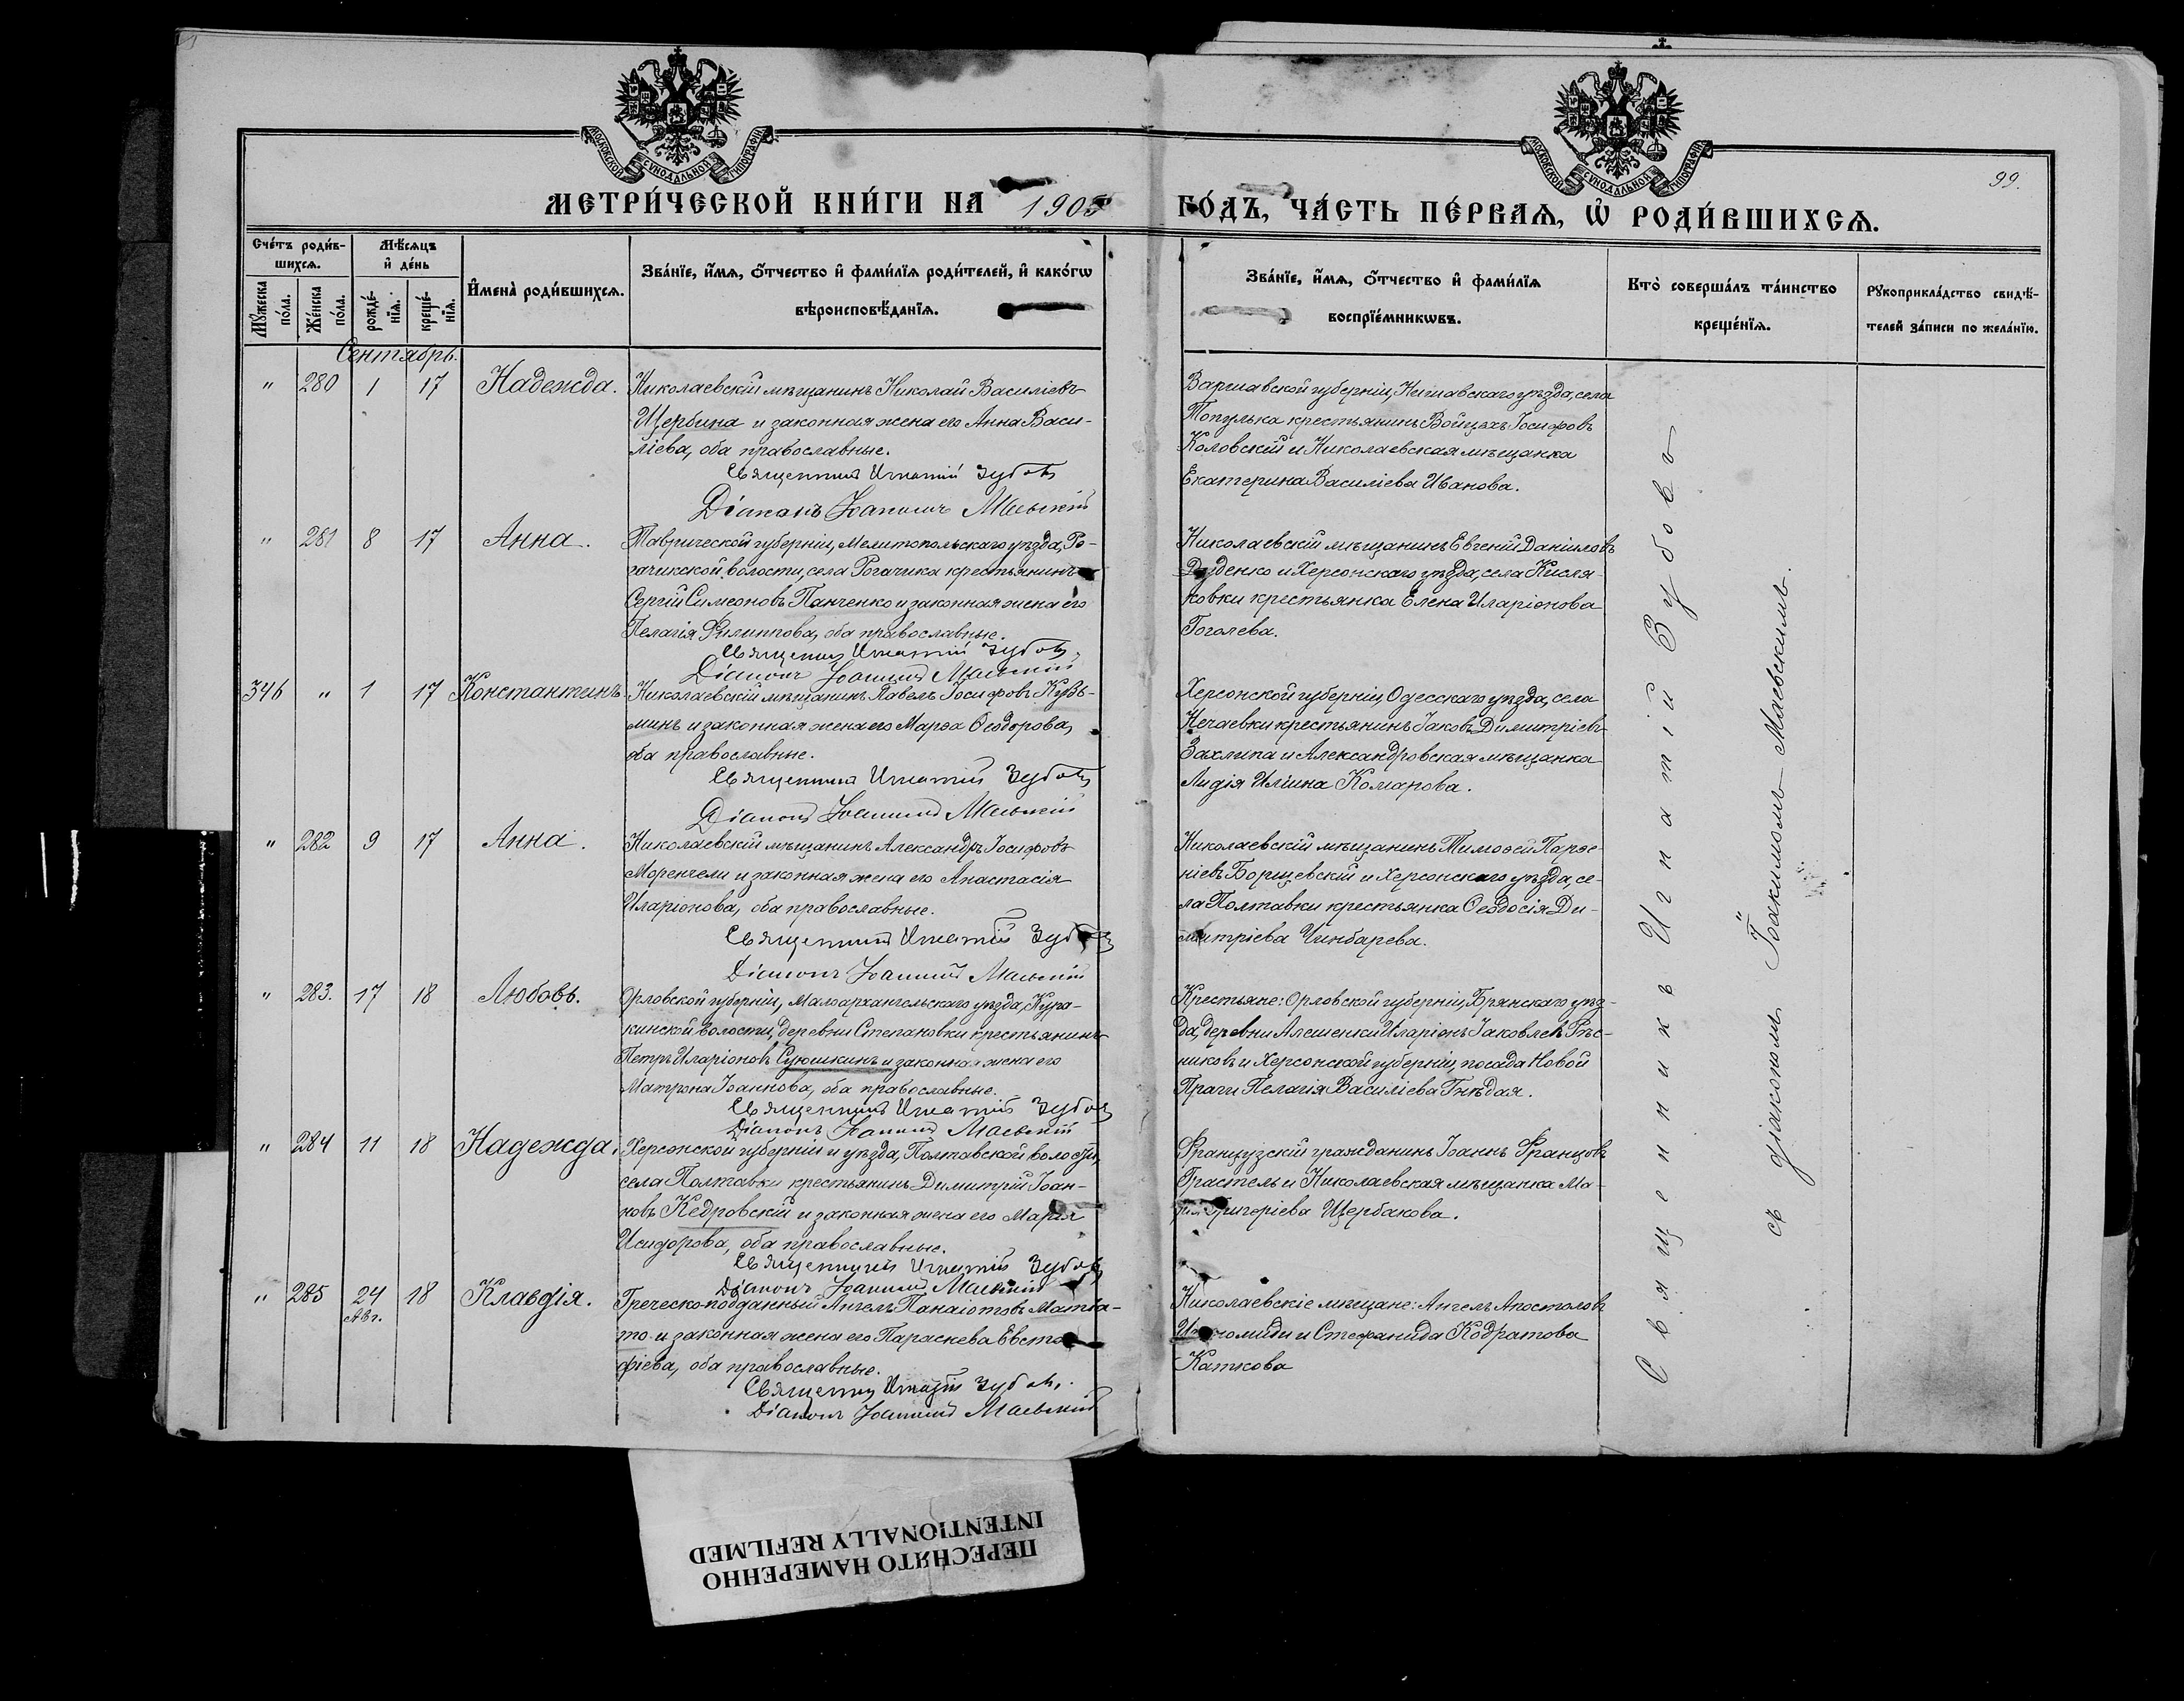 МОСКОВСКОЙ СѴНОДАЛЬНОЙ ТИПОГРАФІИ
МОСКОВСКОЙ СѴНОДАЛЬНОЙ ТИПОГРАФІИ
99.
МЕТРИ́ЧЕСКОЙ КНИ́ГИ НА 1905 ГО́ДЪ, ЧА́СТЬ ПЕ́РВАѦ, Ѡ҆ РОДИ́ВШИХСѦ.
Сче́тъ роди́в-
шихсѧ.
Мꙋ́жеска по́ла.
Же́нска по́ла.
Мѣ́сѧцъ
и҆ де́нь
рожде́-
нїѧ.
креще́-
нїѧ.
И҆мена̀ роди́вшихсѧ.
Зва́нїе, и҆́мѧ, ѻ҆́тчество и҆ фами́лїѧ роди́телей, и҆ како́гѡ
вѣроисповѣ́данїѧ.
Зва́нїе, и҆́мѧ, ѻ҆́тчество и҆ фами́лїѧ
воспрїе́мникѡвъ.
Кто̀ соверша́лъ та́инство
креще́нїѧ.
Рꙋкоприкла́дство свидѣ́-
телей за́писи по жела́нїю.
Сентябрь.
" 280 1 17 Надежда.
Николаевскій мѣщанинъ Николай Василіевъ
Щербина и законная жена его Анна Васи-
ліева, оба православные.
Священникъ Игнатій Зубовъ
Діаконъ Іоакимъ Маевскій
Варшавской губерніи, уѣзда, села
крестьянинъ Войцехъ Іосифовъ
Коловскій и Николаевская мѣщанка
Екатерина Василіева Иванова.
" 281 8 17 Анна.
Таврической губерніи, Мелитопольскаго уѣзда, Ро-
гачикской волости, села Рогачика крестьянинъ
Сергій Симеоновъ Панченко и законная жена его
Пелагія Филиппова, оба православные.
Священникъ Игнатій Зубовъ
Діаконъ Іоакимъ Маевскій
Николаевскій мѣщанинъ Евгеній Даніиловъ
Дуденко и Херсонскаго уѣзда, села Кисля-
ковки крестьянка Елена Иларіонова
Гоголева.
346 " 1 17 Константинъ.
Николаевскій мѣщанинъ Павелъ Іосифовъ Кузь-
минъ и законная жена его Марѳа Ѳеодорова,
оба православные.
Священникъ Игнатій Зубовъ
Діаконъ Іоакимъ Маевскій
Херсонской губерніи, Одесскаго уѣзда, села
Нечаевки крестьянинъ Іаковъ Димитріевъ
Захлипа и Александровская мѣщанка
Лидія Иліина Комарова.
" 282 9 17 Анна.
Николаевскій мѣщанинъ Александръ Іосифовъ
Моренгели и законная жена его Анастасія
Иларіонова, оба православные.
Священникъ Игнатій Зубовъ
Діаконъ Іоакимъ Маевскій
Николаевскій мѣщанинъ Тимоѳей Парѳе-
ніевъ Борщевскій и Херсонскаго уѣзда, се-
ла Полтавки крестьянка Ѳеодосія Ди-
митріева Чинбарева.
" 283. 17 18 Любовь.
Орловской губерніи, Малоархангельскаго уѣзда, Кура-
кинской волости, деревни Степановки крестьянинъ
Петръ Иларіоновъ Суюшкинъ и законная жена его
Матрона Іоаннова, оба православные.
Священникъ Игнатій Зубовъ
Діаконъ Іоакимъ Маевскій
Крестьяне: Орловской губерніи, Брянскаго уѣз-
да, деревни Алешенки Иларіонъ Іаковлевъ Рѣс-
никовъ и Херсонской губерніи, посада Новой
Праги Пелагія Василіева Гнѣдая.
" 284 11 18 Надежда.
Херсонской губерніи и уѣзда, Полтавской волости,
села Полтавки крестьянинъ Димитрій Іоан-
новъ Кедровскій и законная жена его Марія
Исидорова, оба православные.
Священникъ Игнатій Зубовъ
Діаконъ Іоакимъ Маевскій
Французскій гражданинъ Іоаннъ Францовъ
Грастель и Николаевская мѣщанка Ма-
рія Григоріева Щербакова.
" 285 24 Авг. 18 Клавдія.
Греческо-подданный Ангелъ Панаіотовъ Матіа-
то и законная жена его Параскева Евста-
фіева, оба православные.
Священникъ Игнатій Зубовъ.
Діаконъ Іоакимъ Маевскій
Николаевскіе мѣщане: Ангелъ Апостоловъ
и Стефанида Кодратова
Каткова
Священникъ Игнатій Зубовъ
съ діакономъ Іоакимомъ Маевскимъ.
ПЕРЕСНЯТО НАМЕРЕННО
INTENTIONALLY REFILMED